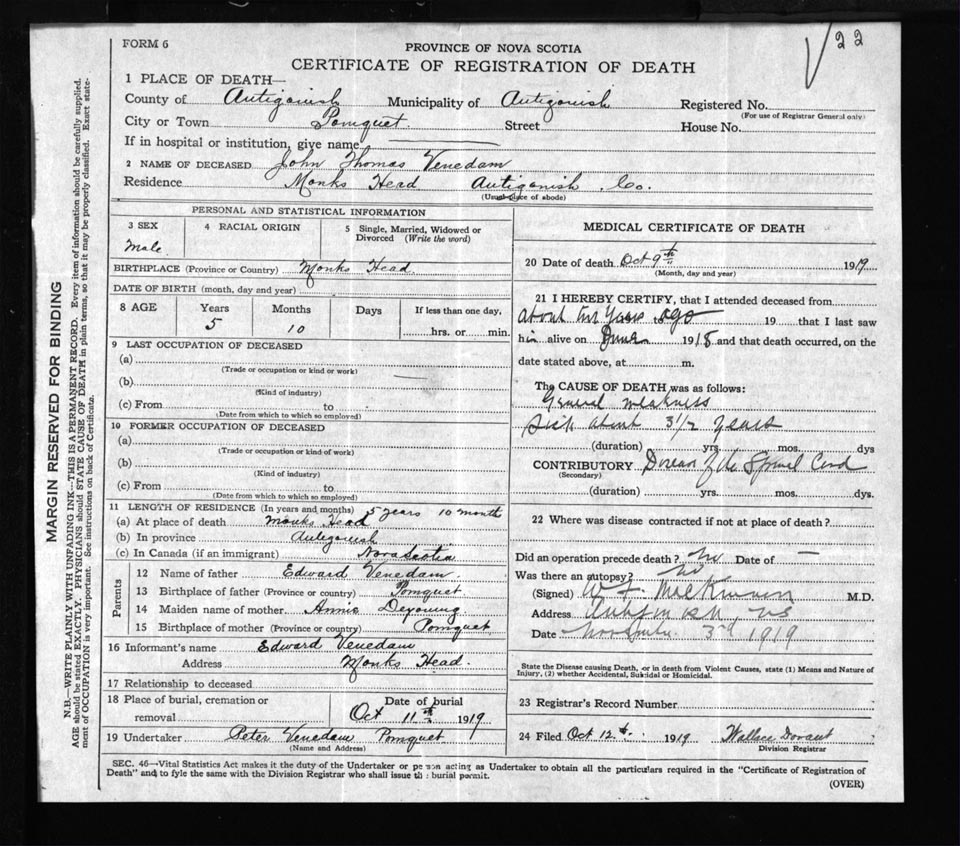 FORM 6
22
PROVINCE OF NOVA SCOTIA
CERTIFICATE OF REGISTRATION OF DEATH
1 PLACE OF DEATH—
County of Antigonish Municipality of Antigonish Registered No.
(For use of Registrar General only)
City or Town Pomquet Street House No.
If in hospital or institution, give name
2 NAME OF DECEASED John Thomas Venedam
Residence Monks Head Antigonish Co.
(Usual place of abode)
PERSONAL AND STATISTICAL INFORMATION
3 SEX 4 RACIAL ORIGIN 5 Single, Married, Widowed or
Divorced (Write the word)
Male
BIRTHPLACE (Province or Country) Monks Head
DATE OF BIRTH (month, day and year)
8 AGE Years Months Days If less than one day,
5 10 hrs. or min.
9 LAST OCCUPATION OF DECEASED
(a)
(Trade or occupation or kind or work)
(b)
(Kind of industry)
(c) From to
(Date from which to which so employed)
10 FORMER OCCUPATION OF DECEASED
(a)
(Trade or occupation or kind of work)
(b)
(Kind of industry)
(c) From to
(Date from which to which so employed)
11 LENGTH OF RESIDENCE (In years and months) 5 years 10 month
(a) At place of death Monks Head
(b) In province Antigonish
(c) In Canada (if an immigrant) Nova Scotia
Parents
12 Name of father Edward Venedam
13 Birthplace of father (Province or country) Pomquet
14 Maiden name of mother Annie Deyoung
15 Birthplace of mother (Province or country) Pomquet
16 Informant's name Edward Venedam
Address Monks Head
17 Relationship to deceased
18 Place of burial, cremation or Date of burial
removal Oct 11th 1919
19 Undertaker Peter Venedam Pomquet
(Name and Address)
MEDICAL CERTIFICATE OF DEATH
20 Date of death Oct 9th 1919
(Month, day and year)
21 I HEREBY CERTIFY, that I attended deceased from
about years ago 19 that I last saw
him alive on June 1918 and that death occurred, on the
date stated above, at m.
The CAUSE OF DEATH was as follows:
General weakness
Sick about 3 1/2 years
(duration) yrs. mos. dys
CONTRIBUTORY Disease of the Spinal Cord
(Secondary)
(duration) yrs. mos. dys.
22 Where was disease contracted if not at place of death?
Did an operation precede death? No Date of —
Was there an autopsy? No
(Signed) W. F. M.D.
Address Antigonish, NS
Date November 3rd 1919
State the Disease causing Death, or in death from Violent Causes, state (1) Means and Nature of
Injury, (2) whether Accidental, Suicidal or Homicidal.
23 Registrar's Record Number
24 Filed Oct 12th 1919 Wallace
Division Registrar
SEC. 46—Vital Statistics Act makes it the duty of the Undertaker or person acting as Undertaker to obtain all the particulars required in the "Certificate of Registration of
Death" and to fyle the same with the Division Registrar who shall issue the burial permit.
(OVER)
MARGIN RESERVED FOR BINDING
N.B.—WRITE PLAINLY WITH UNFADING INK—THIS IS A PERMANENT RECORD. Every item of information should be carefully supplied.
AGE should be stated EXACTLY. PHYSICIANS should STATE CAUSE OF DEATH in plain terms, so that it may be properly classified. Exact state-
ment of OCCUPATION is very important. See instructions on back of Certificate.